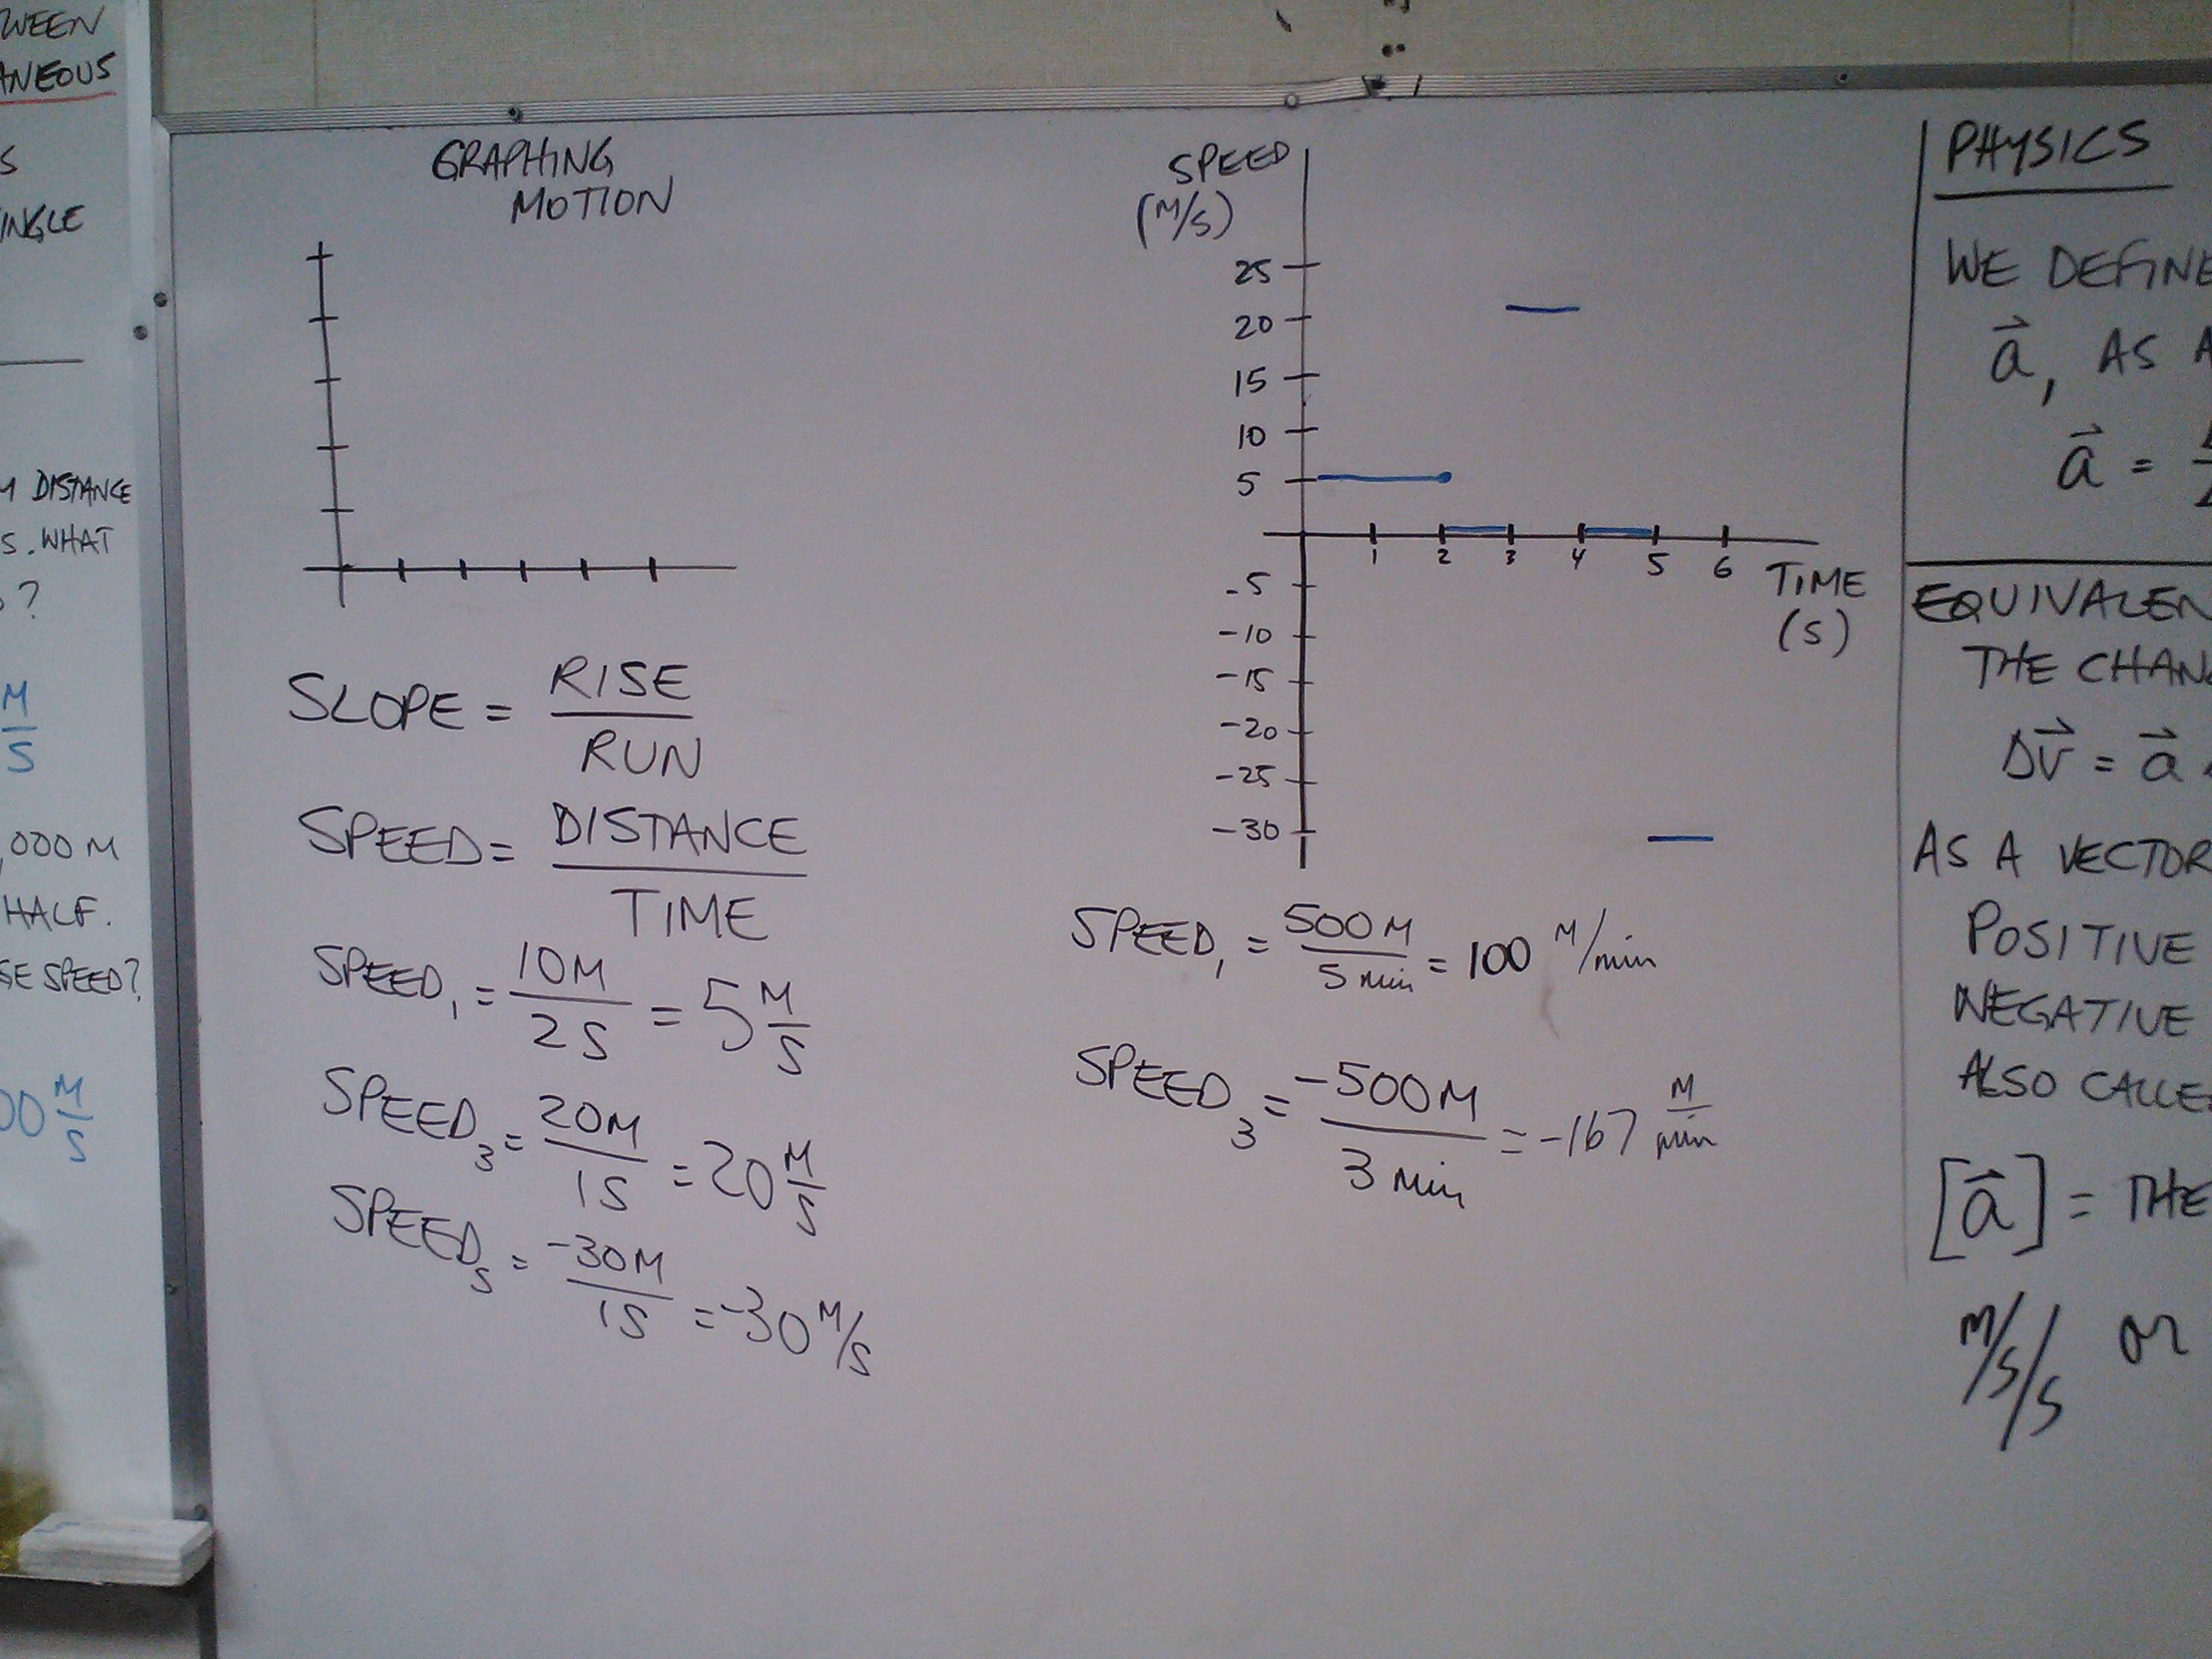 WEEN
ANEOUS
S
INGLE
M DISTANCE
S. WHAT
?
M
S
,000 M
HALF.
GE SPEED?
00 M
S
GRAPHING
MOTION
SLOPE = RISE
RUN
SPEED = DISTANCE
TIME
SPEED₁ = 10M
2S
= 5 M
S
SPEED₃ = 20M
1S
= 20 M
S
SPEED₅ = -30M
1S
= -30 M/S
SPEED
(M/S)
25
20
15
10
5
-5
-10
-15
-20
-25
-30
1 2 3 4 5 6
TIME
(S)
SPEED₁ = 500M
5 min
= 100 M/min
SPEED₃ = -500M
3 min
= -167 M
min
PHYSICS
WE DEFINE
a⃗, AS A
a⃗ =
EQUIVALEN
THE CHANG
Δv⃗ = a⃗
AS A VECTOR
POSITIVE
NEGATIVE
ALSO CALLE
[a⃗] = THE
M/S/S or